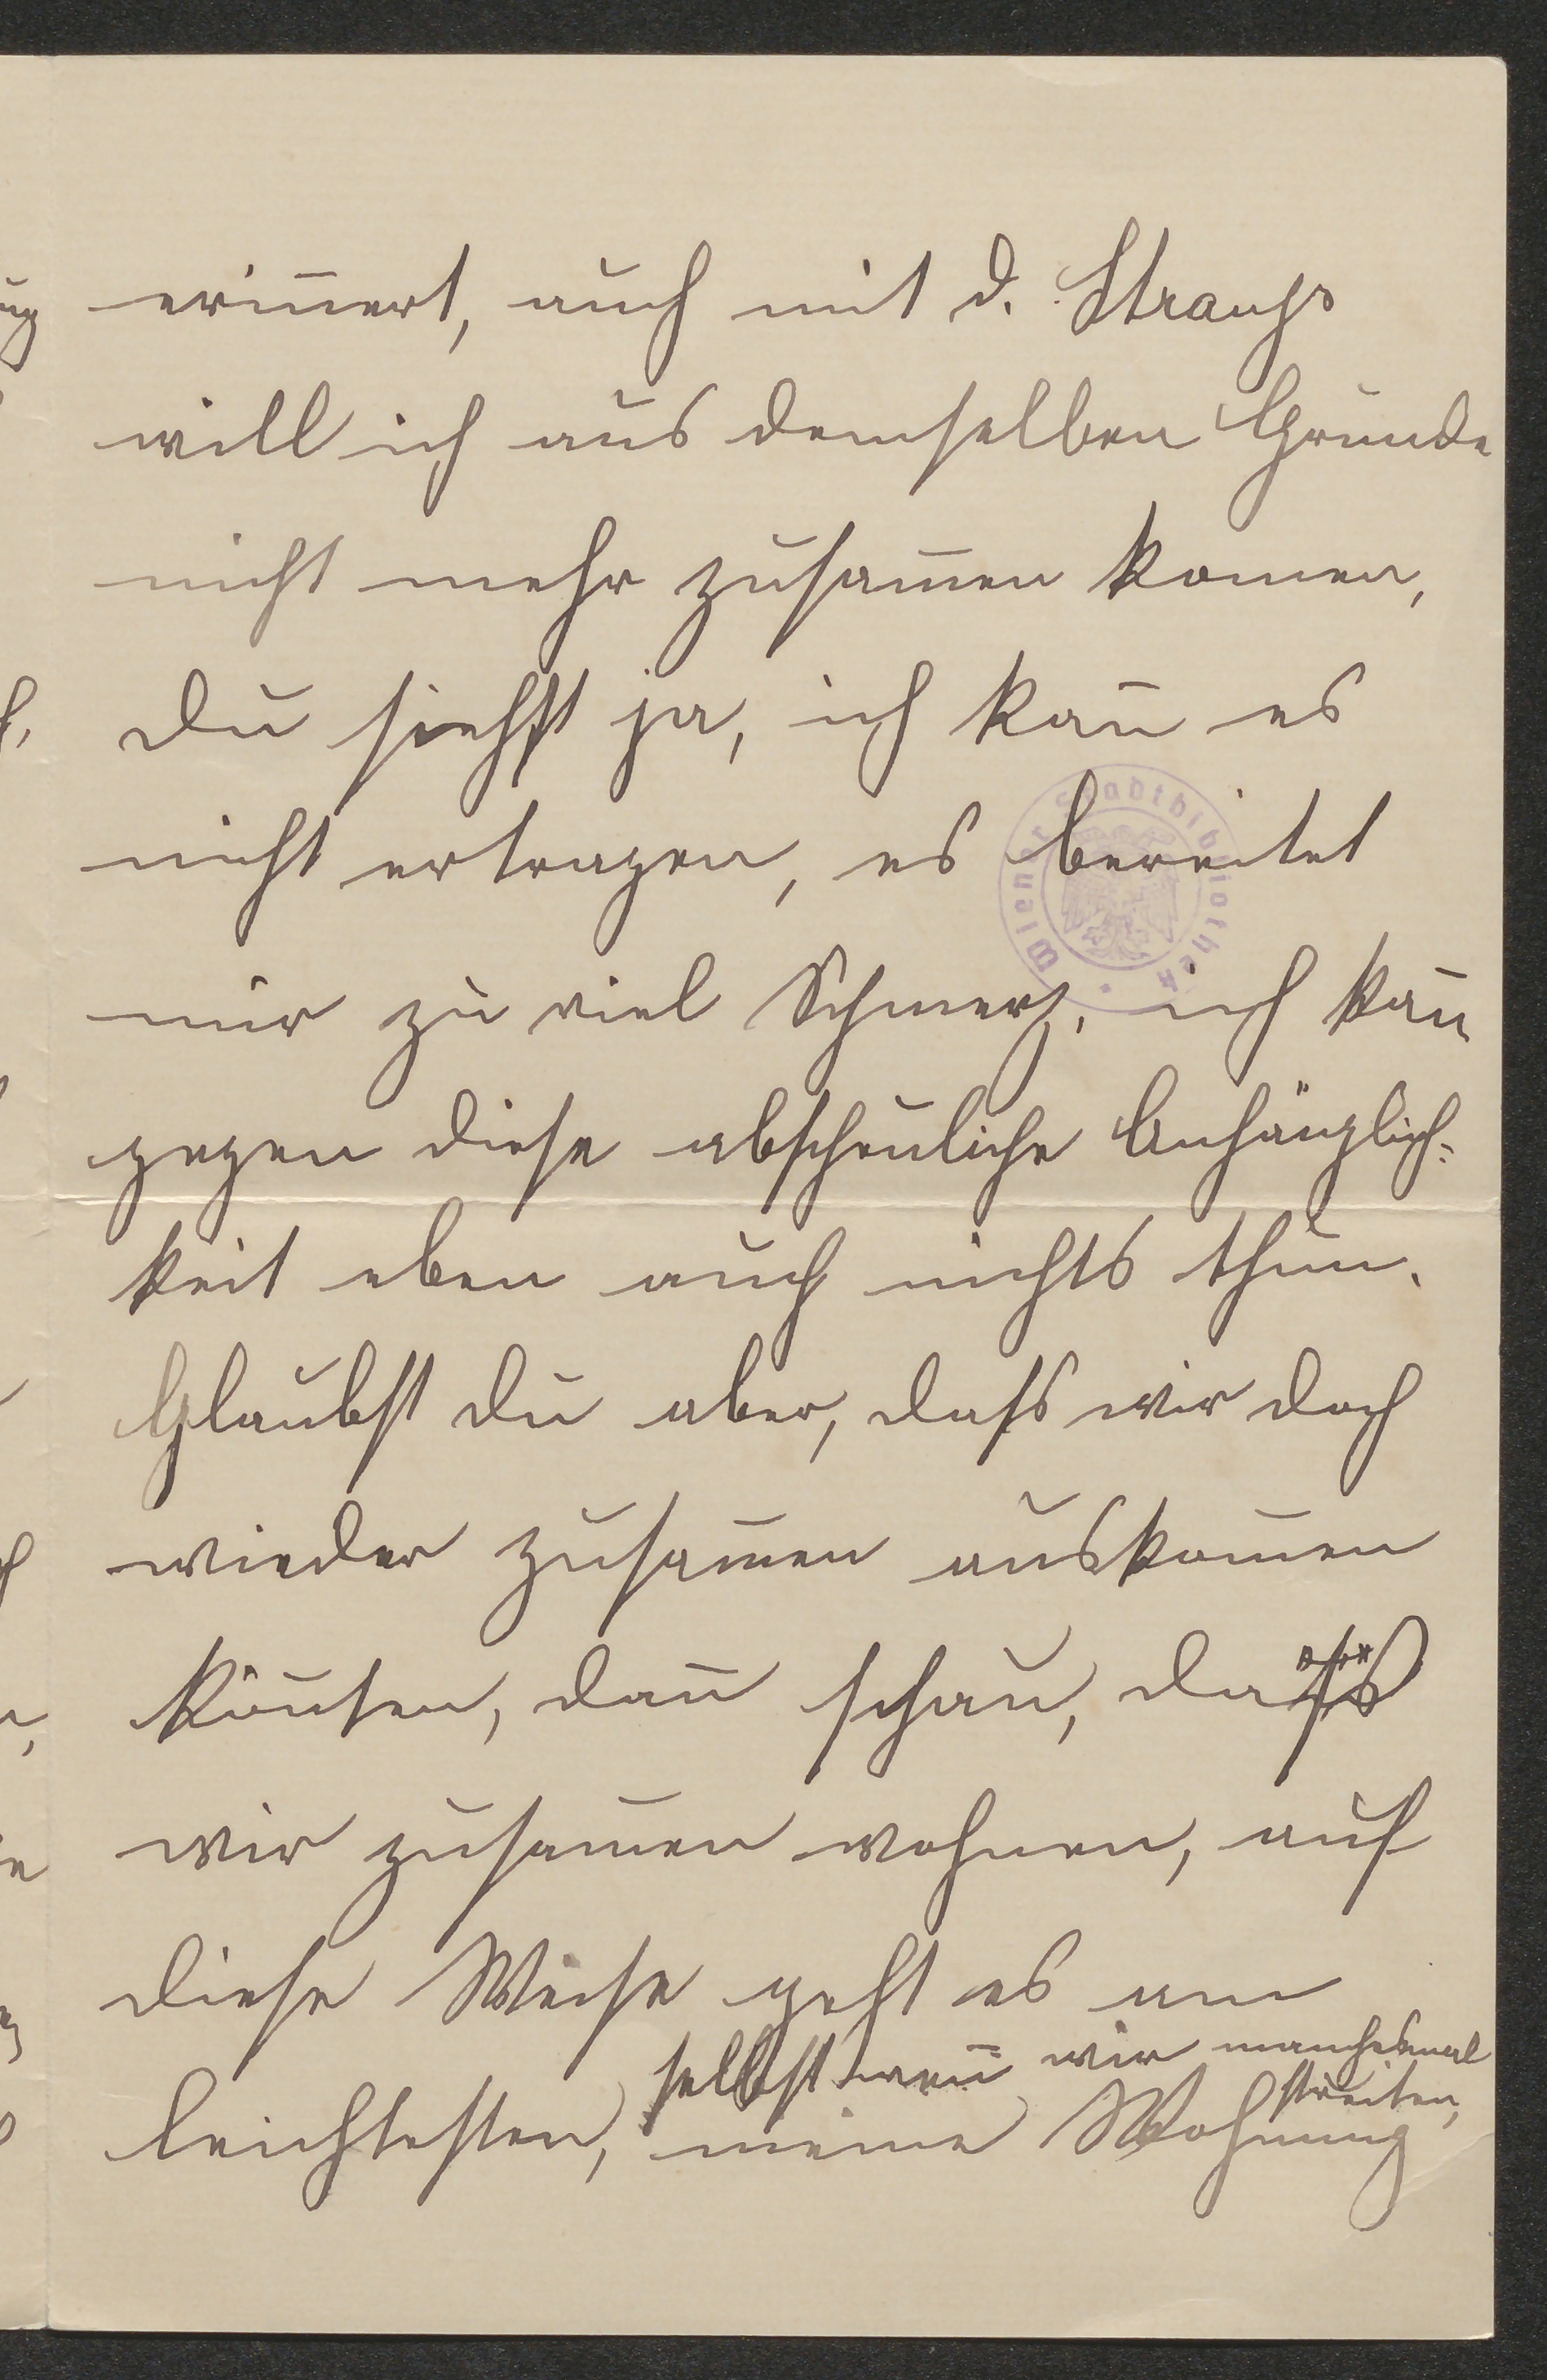 erin̄ert, auch mit d. Strauss
will ich aus demselben Grunde
nicht mehr zusam̄en komen,
du siehst ja, ich kan̄ es
nicht ertragen, es bereitet
mir zu viel Schmerz, ich kan̄
gegen diese abscheuliche Anhänglich-
keit eben auch nichts thun.
Glaubst du aber, dass wir doch
wieder zusam̄en auskom̄en
kön̄ten, dan̄ schau, dass
wir zusam̄en wohnen, auf
diese Weise geht es am
selbst wen̄ wir manchesmal
streiten,
leichtesten, meine Wohnung
Wiener Stadtbibliothek